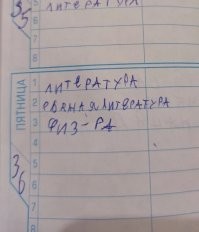 35
5 ЛИТЕРАТУРА
6
7
8
ПЯТНИЦА
1 ЛИТЕРАТУРА
2 РОДНАЯ ЛИТЕРАТУРА
3 ФИЗ-РА
4
36
5
6
7